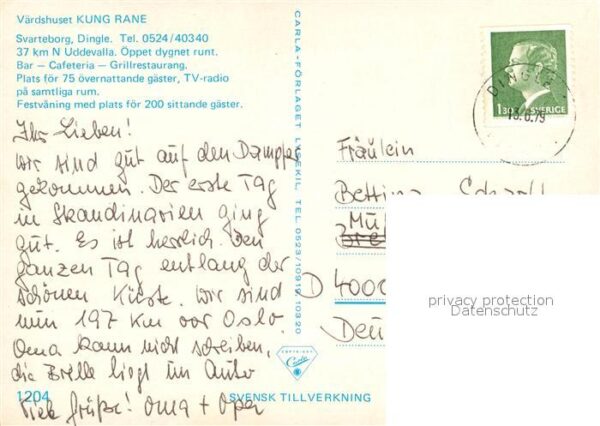 Värdshuset KUNG RANE
Svarteborg, Dingle. Tel. 0524/40340
37 km N Uddevalla. Öppet dygnet runt.
Bar — Cafeteria — Grillrestaurang.
Plats för 75 övernattande gäster, TV-radio
på samtliga rum.
Festvåning med plats för 200 sittande gäster.
Ihr Lieben!
Wir sind gut auf den Dampfer
gekommen. Der erste Tag
in Skandinavien ging
gut. Es ist herrlich. Den
ganzen Tag entlang der
schönen Küste. Wir sind
nun 197 Km vor Oslo.
Oma kann nicht schreiben,
die Brille liegt im Auto
Viele Grüße! Oma + Opa
1204
SVENSK TILLVERKNING
CARLA-FÖRLAGET LYSEKIL, TEL 0523/10919, 10320
COPYRIGHT
Carla
DINGLE
13.6.79
1.30 SVERIGE
Fräulein
Bettina
D 4000
privacy protection
Datenschutz